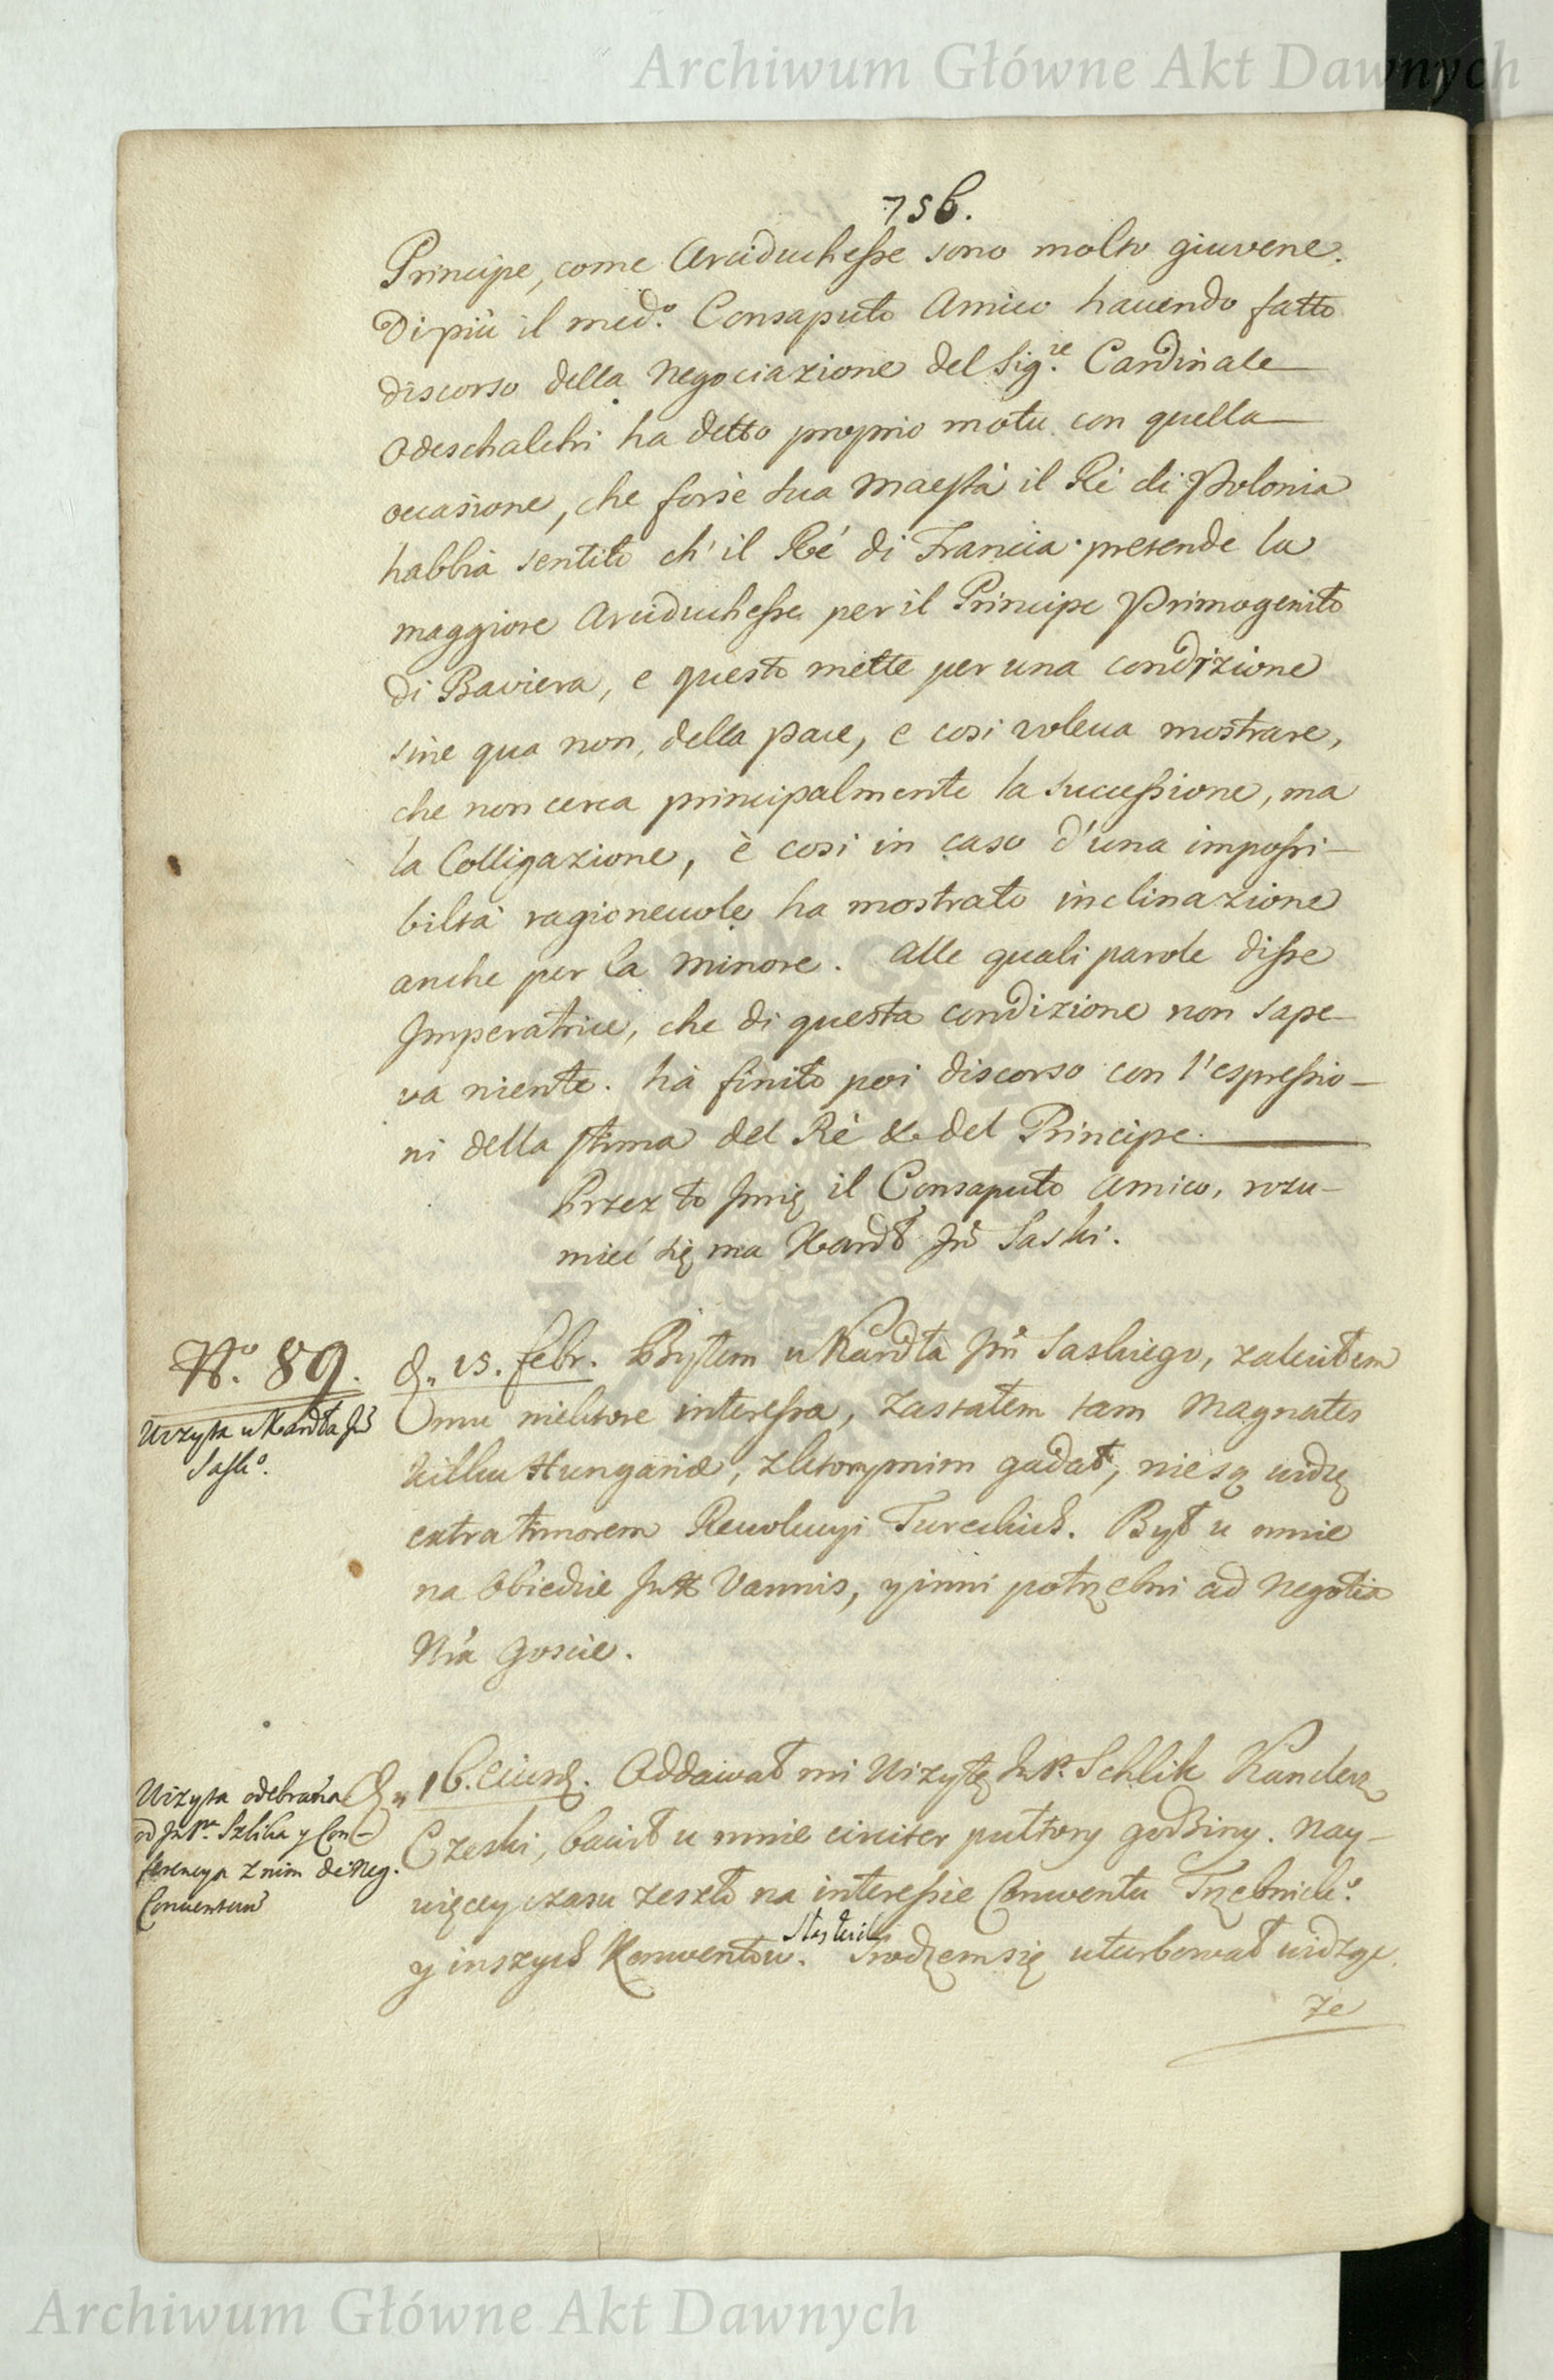 Archiwum Główne Akt Dawnych
756.
Principe, come Arciduchesse sono molto giuvene.
Di più il med.º Consaputo Amico hauendo fatto
discorso della negociazione del Sig.re Cardinale
Odeschalchi ha detto proprio motu con quella
occasione, che forse sua Maestà il Rè di Polonia
habbia sentito ch'il Rè di Francia pretende la
maggiore Arciduchesse per il Principe Primogenito
di Baviera, e questo mette per una condizione
sine qua non, della pace, e cosi voleva mostrare,
che non cerca principalmente la Successione, ma
la Colligazione, è cosi in caso d'una impossi-
biltà ragioneuole ha mostrato inclinazione
anche per la minore. Alle quali parole disse
Imperatrice, che di questa condizione non sape-
va niente. hà finito poi discorso con l'espressio-
ni della stima del Rè & del Principe.
Przez to Jmię il Consaputo Amico, rozu-
mieć się ma Kardł Jm̃ Saski.
N.º 89.
Wizyta u Kardła Jm̃
Saskº.
d. 15. febr. Byłem u Kardła Jm̃ Saskiego, zaleciłem
Onmu niektore interessa, Zastałem tam Magnates
kilku Hungariæ, z ktorymim gadał, nie są widzę
extra timorem Rewolucyi Tureckich. Był u mnie
na Obiedzie Vannis, y inni potrzebni ad negotia
Nr̃a Goscie.
Wizyta odebrana
od Szlika y Con-
ferencya z nim de Neg.
Conventuũ
d. 16. Eiusd. Oddawał mi Wizytę Schlik Kanclerz
Czeski, bawił u mnie circiter pułtory godziny. Nay-
więcey czasu zeszło na interessie Conwentu Trzebnickº
y inszych Konwentow. Srodzem się uturbował widząc
że
Archiwum Główne Akt Dawnych